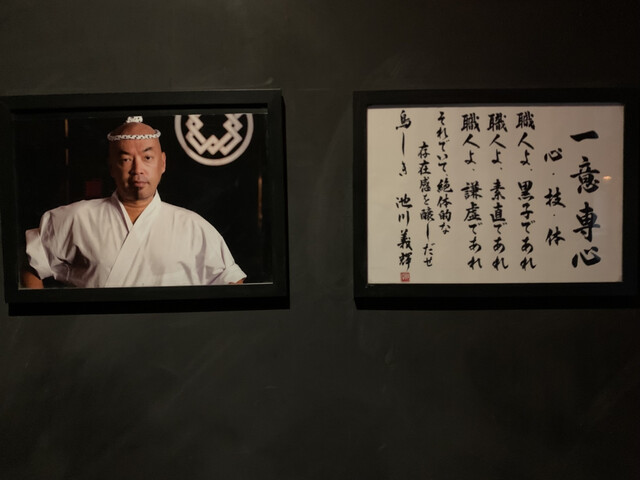 一意専心
心・技・体
職人よ、黒子であれ
職人よ、素直であれ
職人よ、謙虚であれ
それでいて絶体的な
存在感を醸しだせ
鳥しき 池川義輝